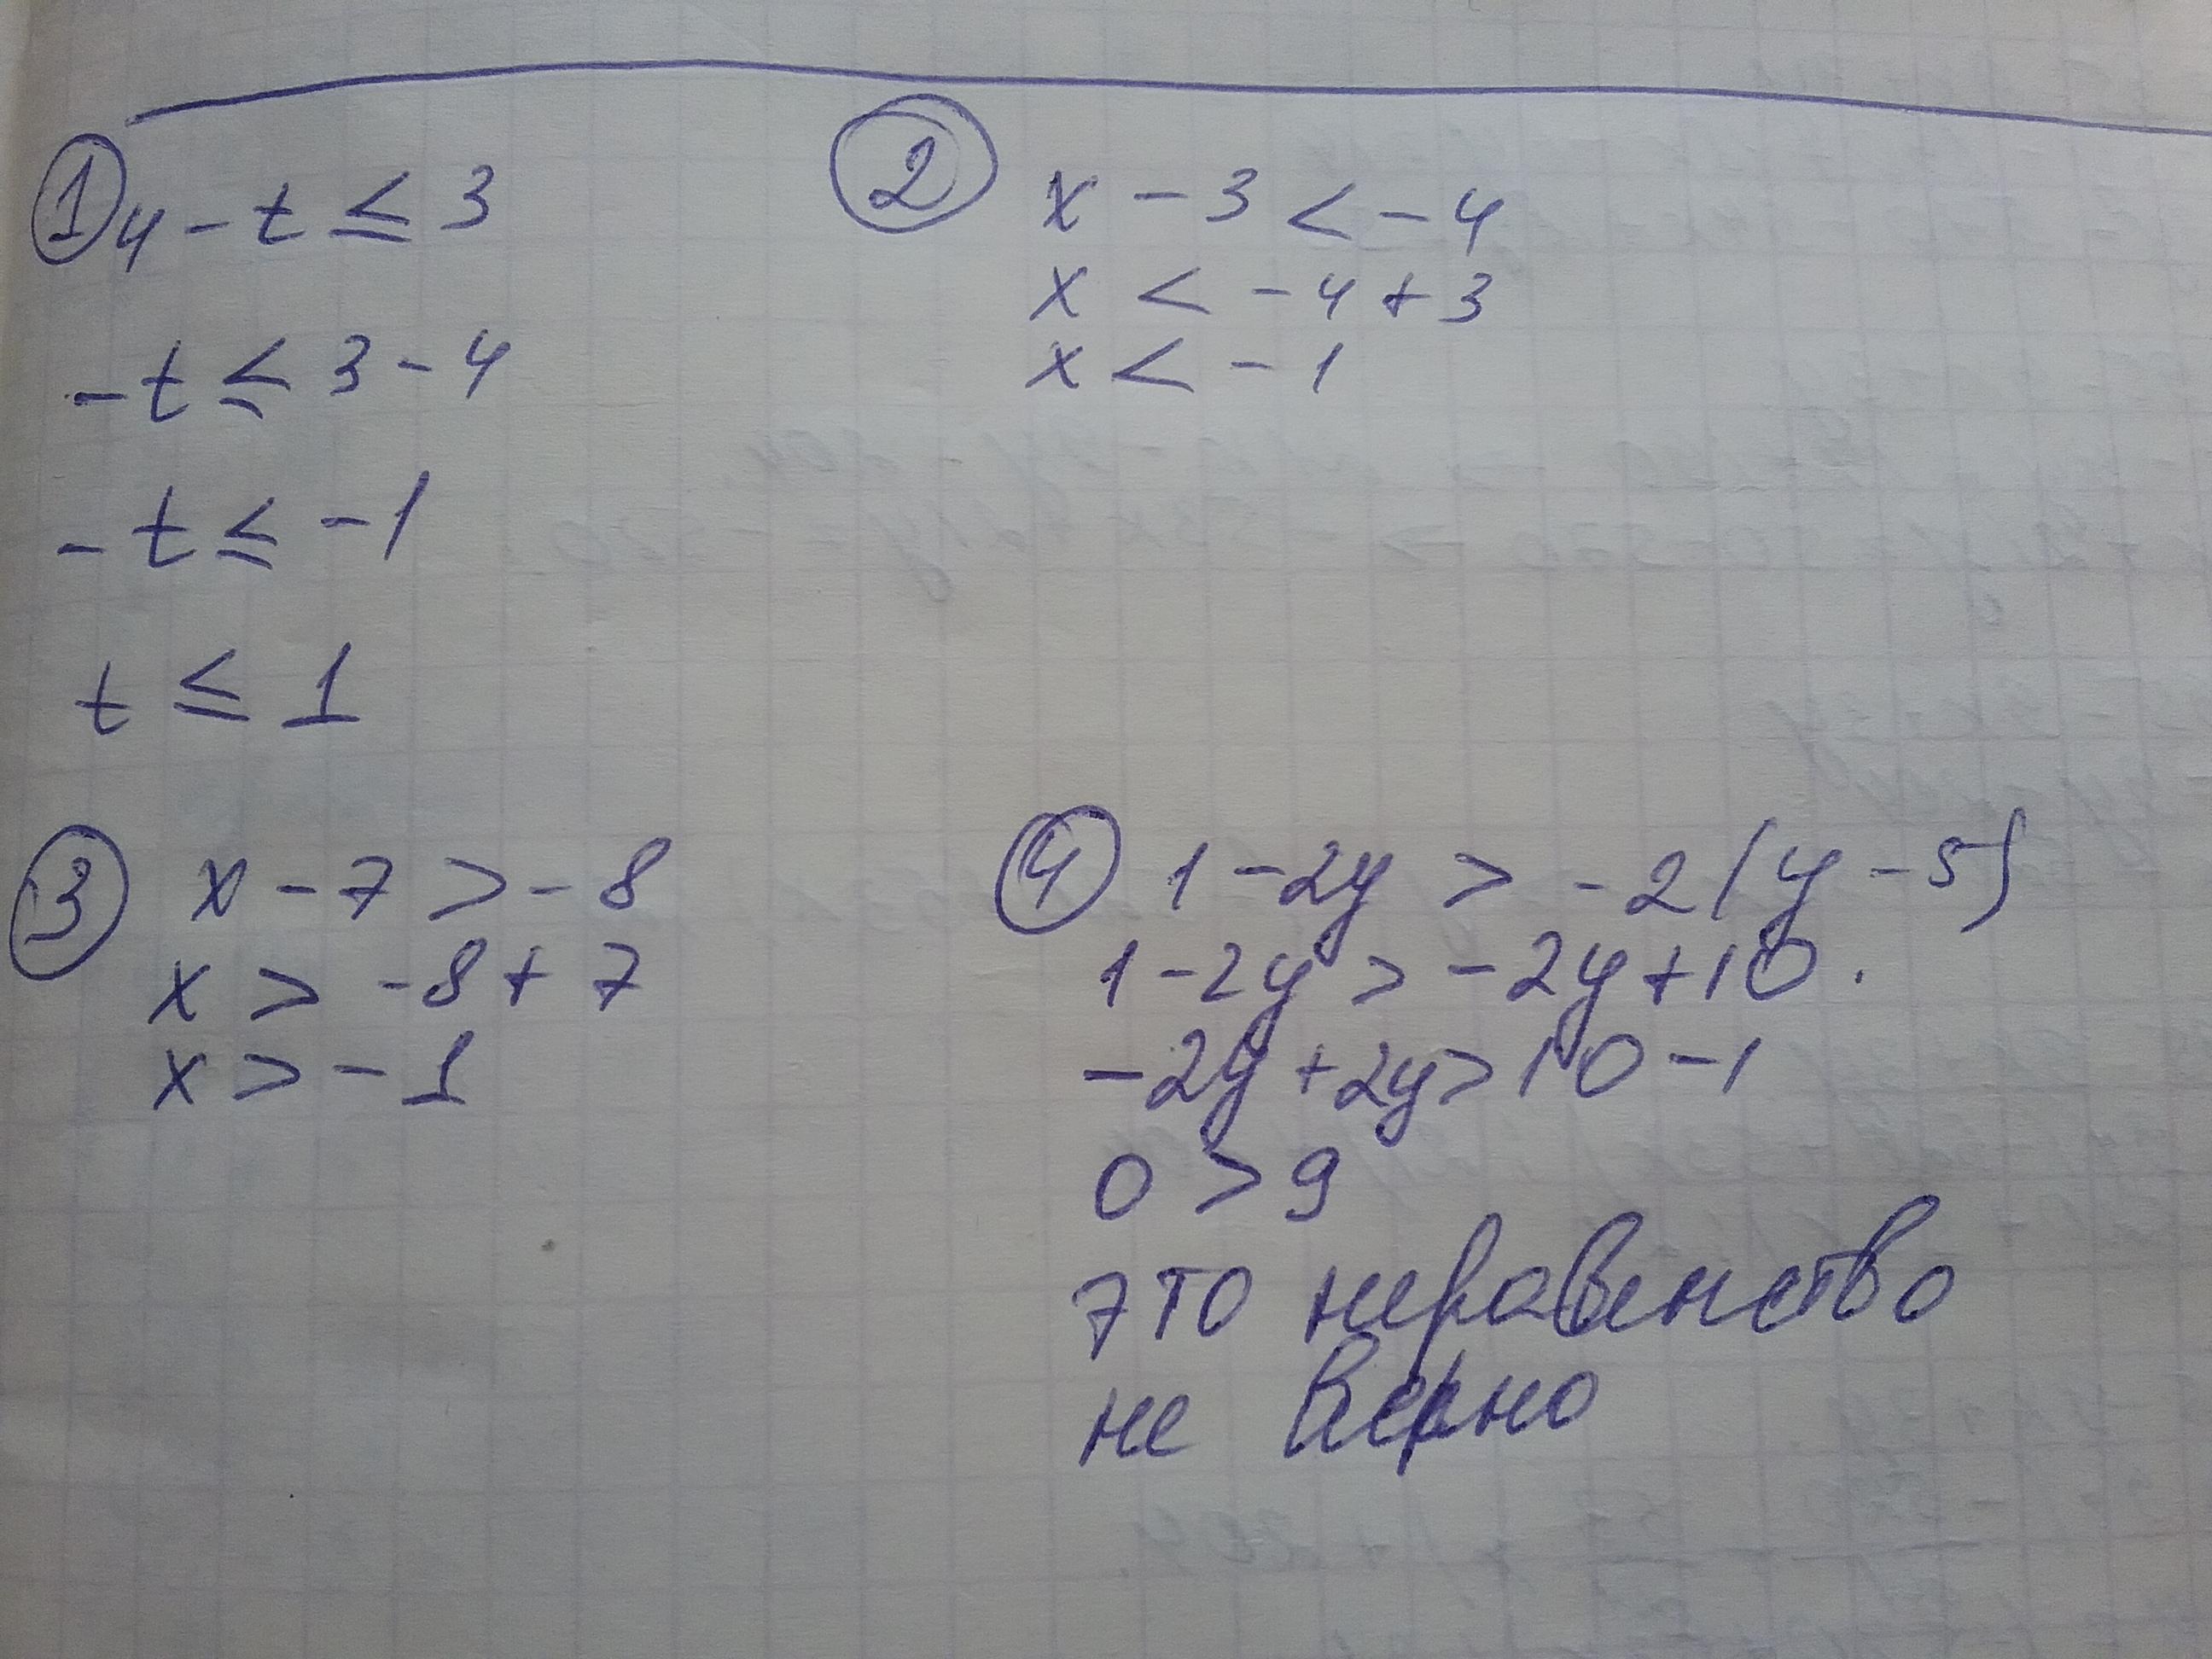 1 4 - t ≤ 3
- t ≤ 3 - 4
- t ≤ -1
t ≤ 1
2 x - 3 < - 4
x < - 4 + 3
x < - 1
3 x - 7 > - 8
x > - 8 + 7
x > - 1
4 1 - 2y > - 2(y - 5)
1 - 2y > - 2y + 10.
- 2y + 2y > 10 - 1
0 > 9
это неравенство
не верно